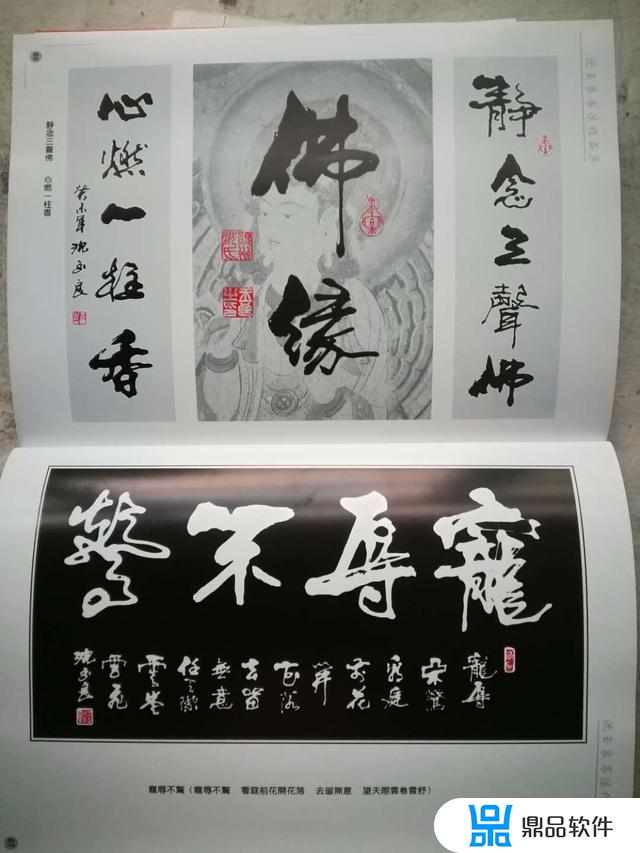 沈玉良書法作品集
靜念三聲佛
佛緣
心燃一柱香
癸未年 沈玉良
靜念三聲佛 心燃一柱香
寵辱不驚
寵辱
不驚
看庭
前花
開
花落
去留
無意
任天際
雲卷
沈玉良
寵辱不驚(寵辱不驚 看庭前花開花落 去留無意 望天際雲卷雲舒)
鼎品软件